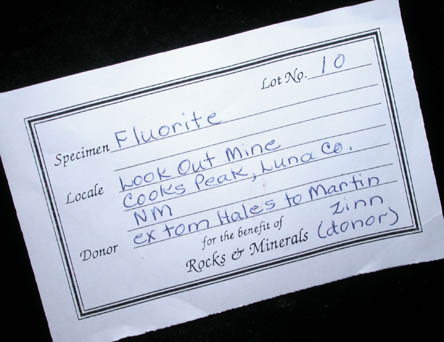 Lot No. 10
Specimen Fluorite
Locale Look Out Mine
Cooks Peak, Luna Co.
NM
Donor ex Tom Hales to Martin
Zinn
for the benefit of
Rocks & Minerals (donor)